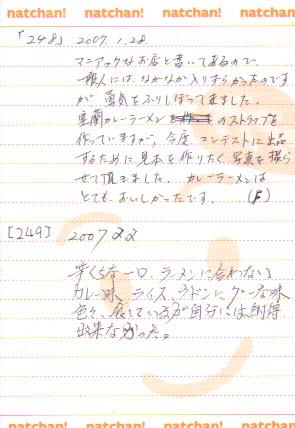 natchan! natchan! natchan! natchan!
「248」 2007.1.28
マニアックなお店と書いてあるので、
一般人には、なかなか入りずらかったのです
が 勇気をふりしぼって来ました。
室蘭カレーラーメン のストラップを
作っていますが、今度、コンテストに出品
するために見本を作りたく、写真を撮ら
せて頂きました。カレーラーメンは
とても、おいしかったです。
[249] 2007
な一口、ラーメンに合わない
カレー味、ライス、ウドンに な味
色々、 しているが自分には納得
出来なかった。
natchan! natchan! natchan! natchan!